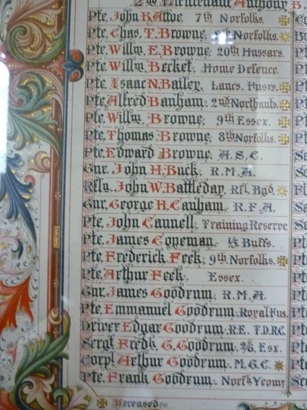 2nd Lieutenant Anthony B.
Pte. John B. Attoe 7th Norfolks.
Pte. Chas. T. Browne. Norfolks.
Pte. Willm. E. Browne. 20th Hussars.
Pte. Willm. Becket. Home Defence.
Pte. Isaac N. Bailey. Lancs. Fusrs.
Pte. Alfred Banham. 2nd Northants.
Pte. Willm. Browne. 9th Essex.
Pte. Thomas Browne. 8th Norfolks.
Pte. Edward Browne. A.S.C.
Gnr. John H. Buck. R.M.A.
Rfln. John W. Battleday. Rfl. Bgd.
Gnr. George H. Canham. R.F.A.
Pte. John Cannell. Training Reserve
Pte. James Copeman. 1/5 Buffs.
Pte. Frederick Feek. 9th Norfolks.
Pte. Arthur Feek. Essex.
Gnr. James Goodrum. R.M.A.
Pte. Emmanuel Goodrum. Royal Fus.
Driver Edgar Goodrum. R.E. F.D.R.C.
Sergt. Fredk. G. Goodrum. 2/6. Esx.
Corpl Arthur Goodrum. M.G.C.
Pte. Frank Goodrum. Norfk Yeom
Deceased